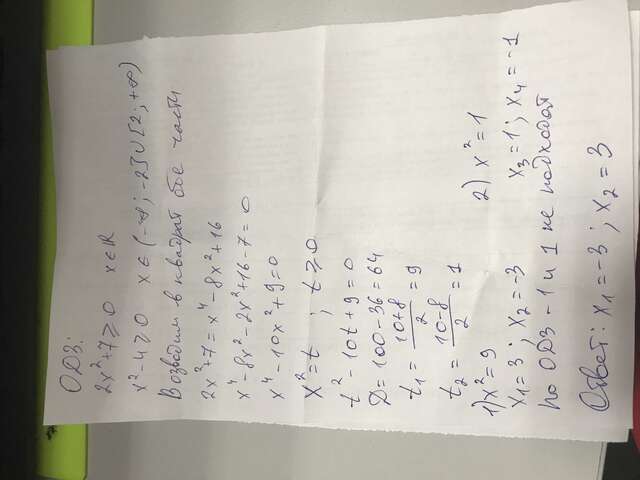 ОДЗ:
2x²+7⩾0 x∈ℝ
x²-4⩾0 x∈(-∞;-2]∪[2;+∞)
Возводим в квадрат обе части
2x²+7=x⁴-8x²+16
x⁴-8x²-2x²+16-7=0
x⁴-10x²+9=0
x²=t; t⩾0
t²-10t+9=0
D=100-36=64
t₁=(10+8)/2=9
t₂=(10-8)/2=1
1) x²=9 2) x²=1
x₁=3; x₂=-3 x₃=1; x₄=-1
по ОДЗ -1 и 1 не подходят
Ответ: x₁=-3; x₂=3